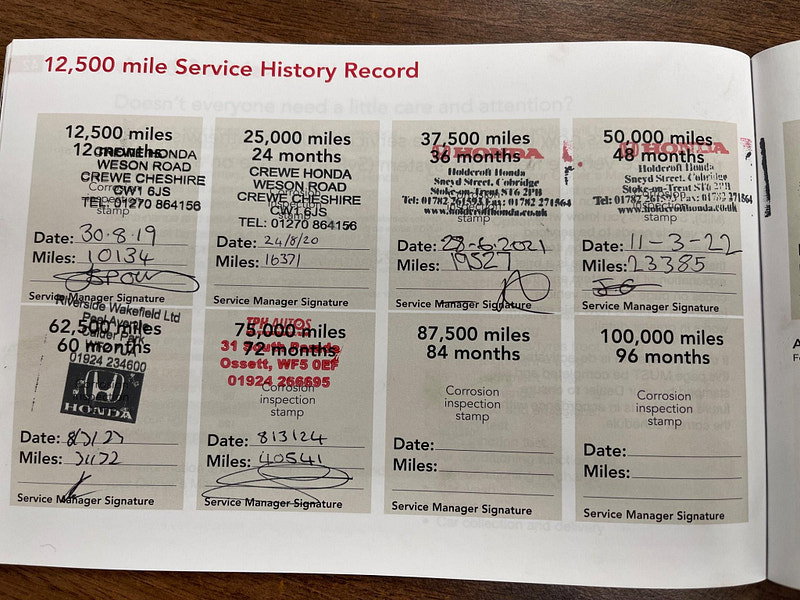 12,500 mile Service History Record
12,500 miles
12 months
CREWE HONDA
WESON ROAD
CREWE CHESHIRE
CW1 6JS
TEL: 01270 864156
Corrosion
inspection
stamp
Date: 30.8.19
Miles: 10134
Service Manager Signature
25,000 miles
24 months
CREWE HONDA
WESON ROAD
CREWE CHESHIRE
CW1 6JS
TEL: 01270 864156
inspection
stamp
Date: 24/8/20
Miles: 16371
Service Manager Signature
37,500 miles
36 months
HONDA
Holdcroft Honda
Sneyd Street, Cobridge
Stoke-on-Trent ST6 2PB
Tel: 01782 261593 Fax: 01782 271564
www.holdcrofthonda.co.uk
stamp
Date: 28-6-2021
Miles: 19527
Service Manager Signature
50,000 miles
48 months
HONDA
Holdcroft Honda
Sneyd Street, Cobridge
Stoke-on-Trent ST6 2PB
www.holdcrofthonda.co.uk
stamp
Date: 11-3-22
Miles: 23385
Service Manager Signature
62,500 miles
60 months
Riverside Wakefield Ltd
Peel Avenue
Calder Park
01924 234600
HONDA
Date: 8/3/23
Miles: 31172
Service Manager Signature
75,000 miles
72 months
TPH AUTOS
31 South Parade
Ossett, WF5 0EF
01924 266695
Corrosion
inspection
stamp
Date: 8/3/24
Miles: 40541
Service Manager Signature
87,500 miles
84 months
Corrosion
inspection
stamp
Date:
Miles:
Service Manager Signature
100,000 miles
96 months
Corrosion
inspection
stamp
Date:
Miles:
Service Manager Signature